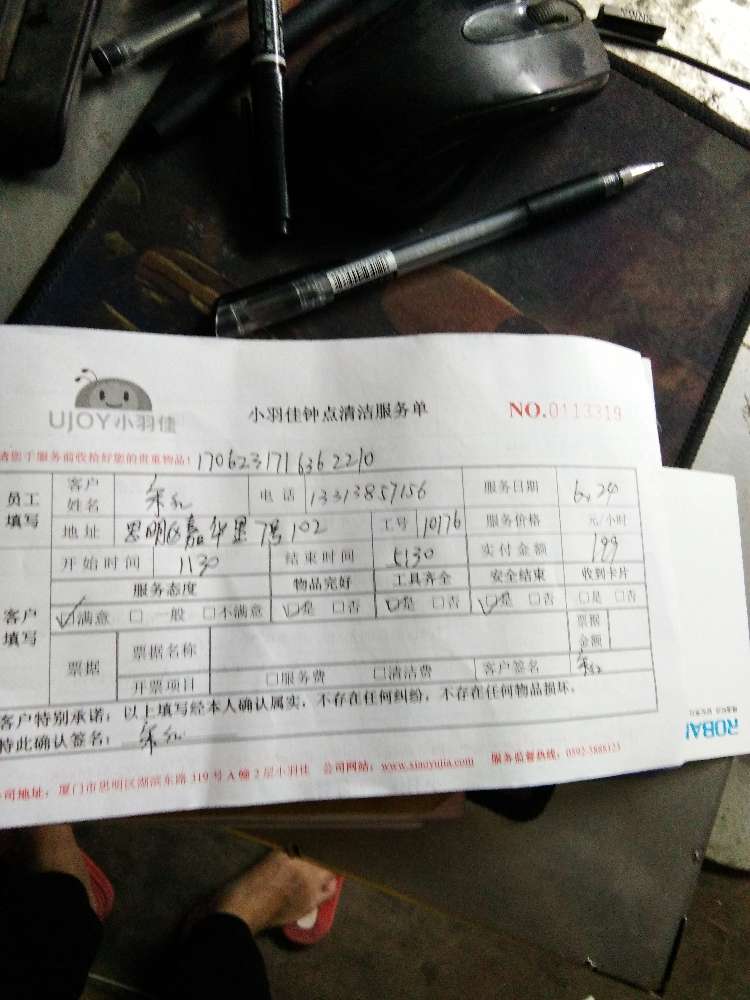 UJOY小羽佳
小羽佳钟点清洁服务单
NO.0113319
请您于服务前收拾好您的贵重物品!
员工填写 客户姓名 朱红 电话 13313857156 服务日期 6.24
地址 思明区嘉华里7号102 工号 10176 服务价格 元/小时
开始时间 1130 结束时间 5130 实付金额 199
客户填写 服务态度 物品完好 工具齐全 安全结束 收到卡片
满意 □ 一般 □不满意 □是 □否 □是 □否 □是 □否 □是 □否
票据 票据名称 票据金额
开票项目 □服务费 □清洁费 客户签名 朱红
客户特别承诺:以上填写经本人确认属实,不存在任何纠纷,不存在任何物品损坏,
特此确认签名: 朱红
公司地址:厦门市思明区湖滨东路 119 号 A 幢 2 层小羽佳 公司网站:www.xiaoyujia.com 服务监督热线:0592-5888123
ROBA!